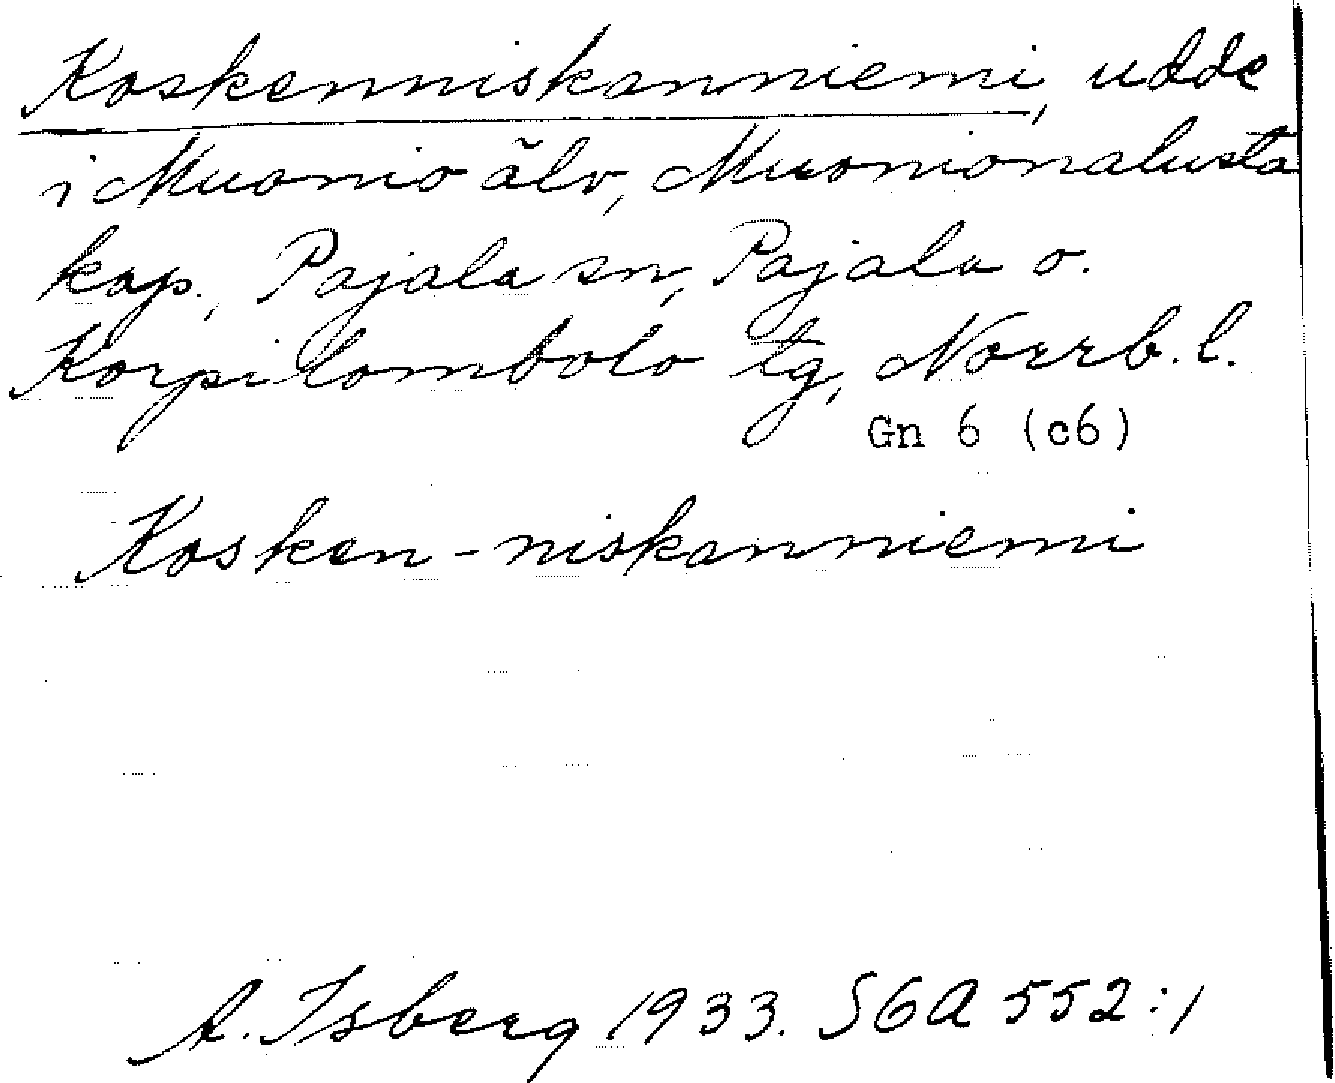 Koskenniskanniemi, udde
i Muonio älv, Muonionalusta
kap., Pajala sn, Pajala o.
Korpilombolo tg, Norrb. l.
Gn 6 (c6)
Kosken-niskanniemi
A. Isberg 1933. SGA 552:1